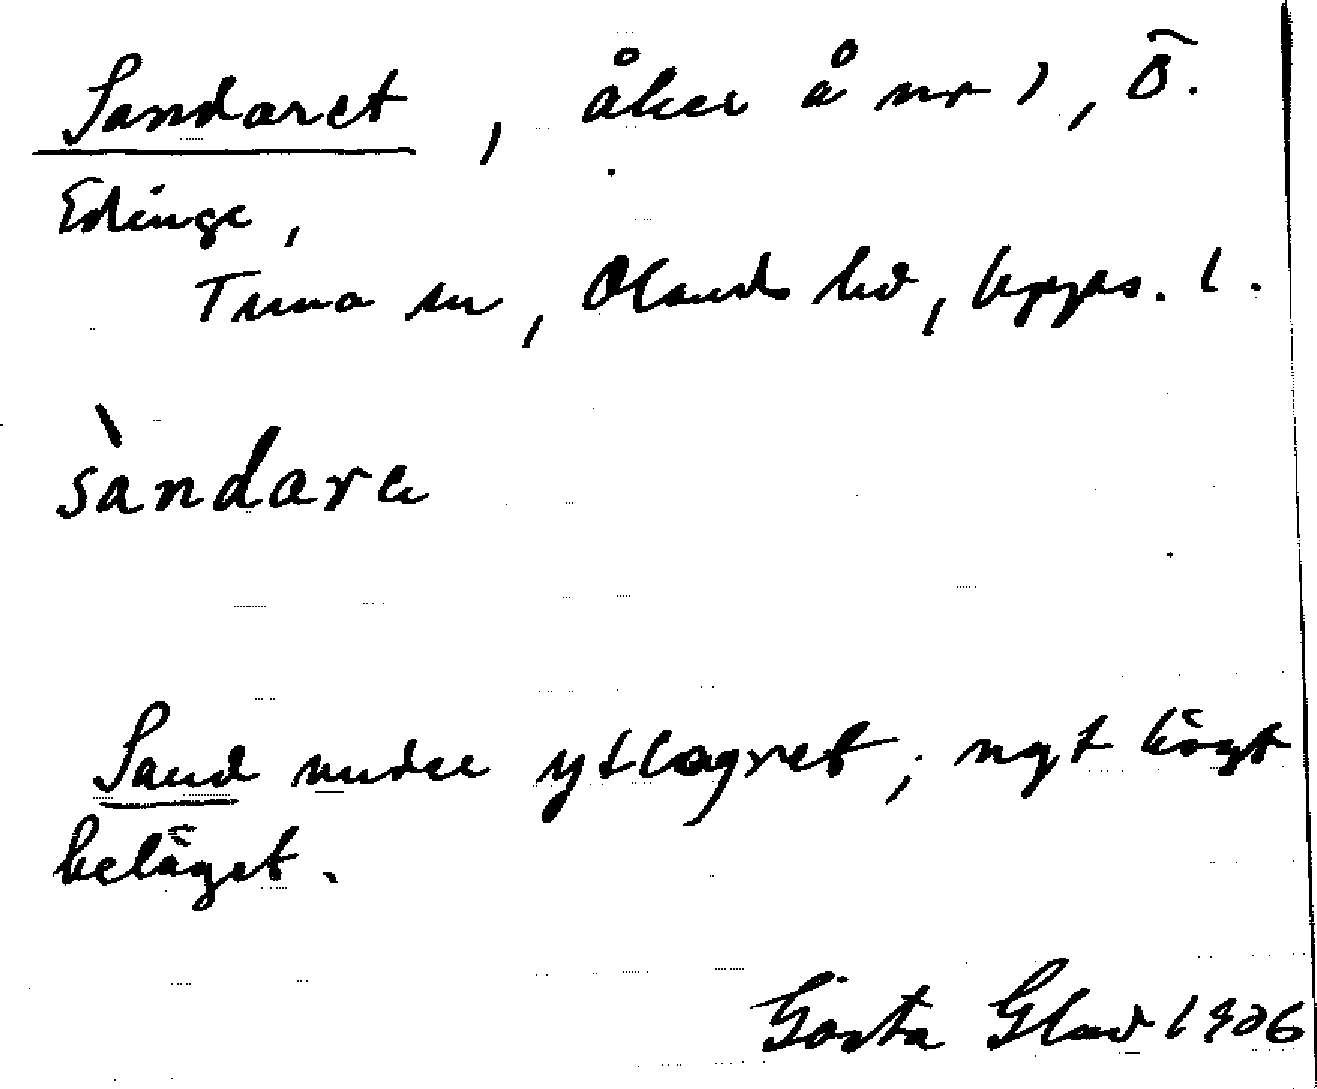 Sandaret, åker å nr 1, Ö.
Edinge,
Tuna sn, Olands hd, Upps. l.
sàndare
Sand under ytlagret; ngt högt
beläget.
Gösta Glad 1936